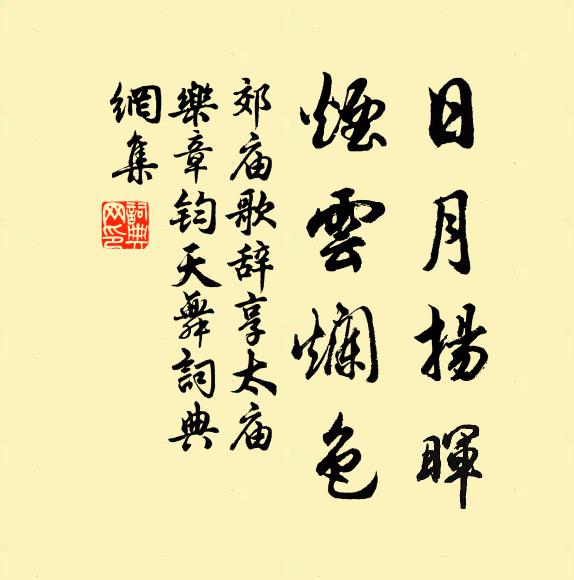 日月揚暉
煙雲爛色
郊庙歌辞享太庙
樂章鈞天舞詞典
網集
詞典
网印